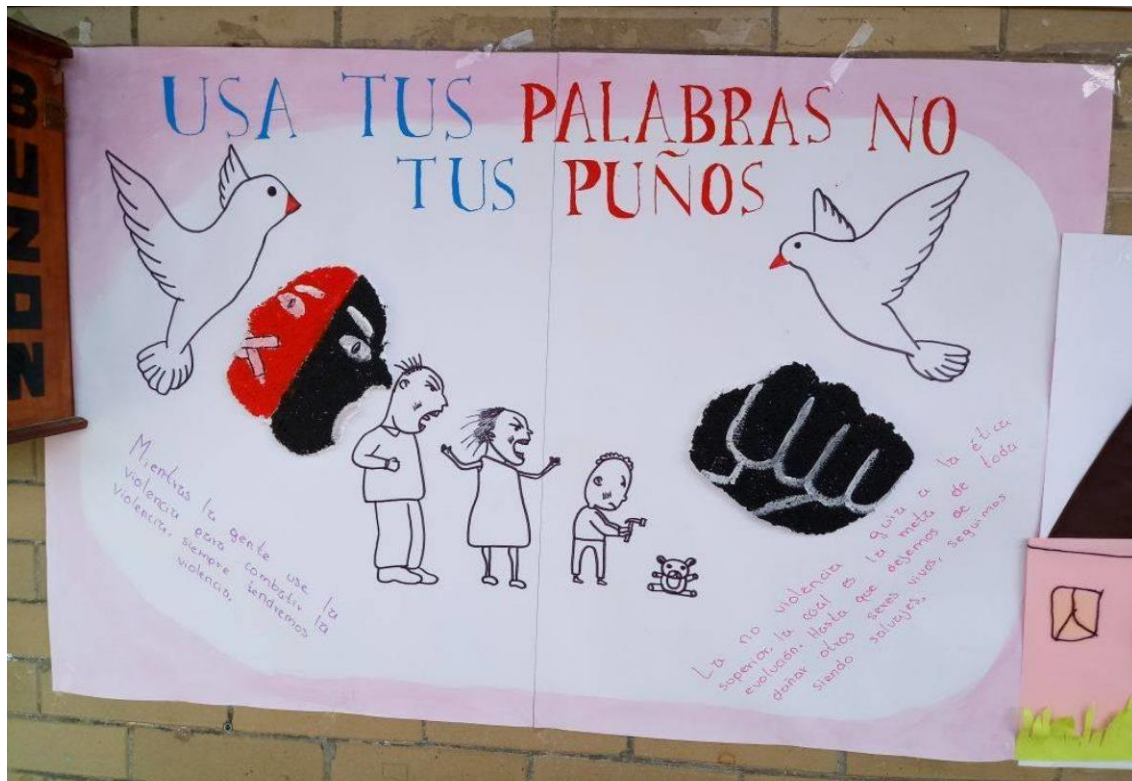 USA TUS PALABRAS NO
TUS PUÑOS
BUZON
Mientras la gente use la
violencia para combatir la
violencia, siempre tendremos
violencia.
La no violencia guia a la ética
superior, la cual es la meta de toda
evolución. Hasta que dejemos de
dañar otros seres vivos, seguimos
siendo salvajes.